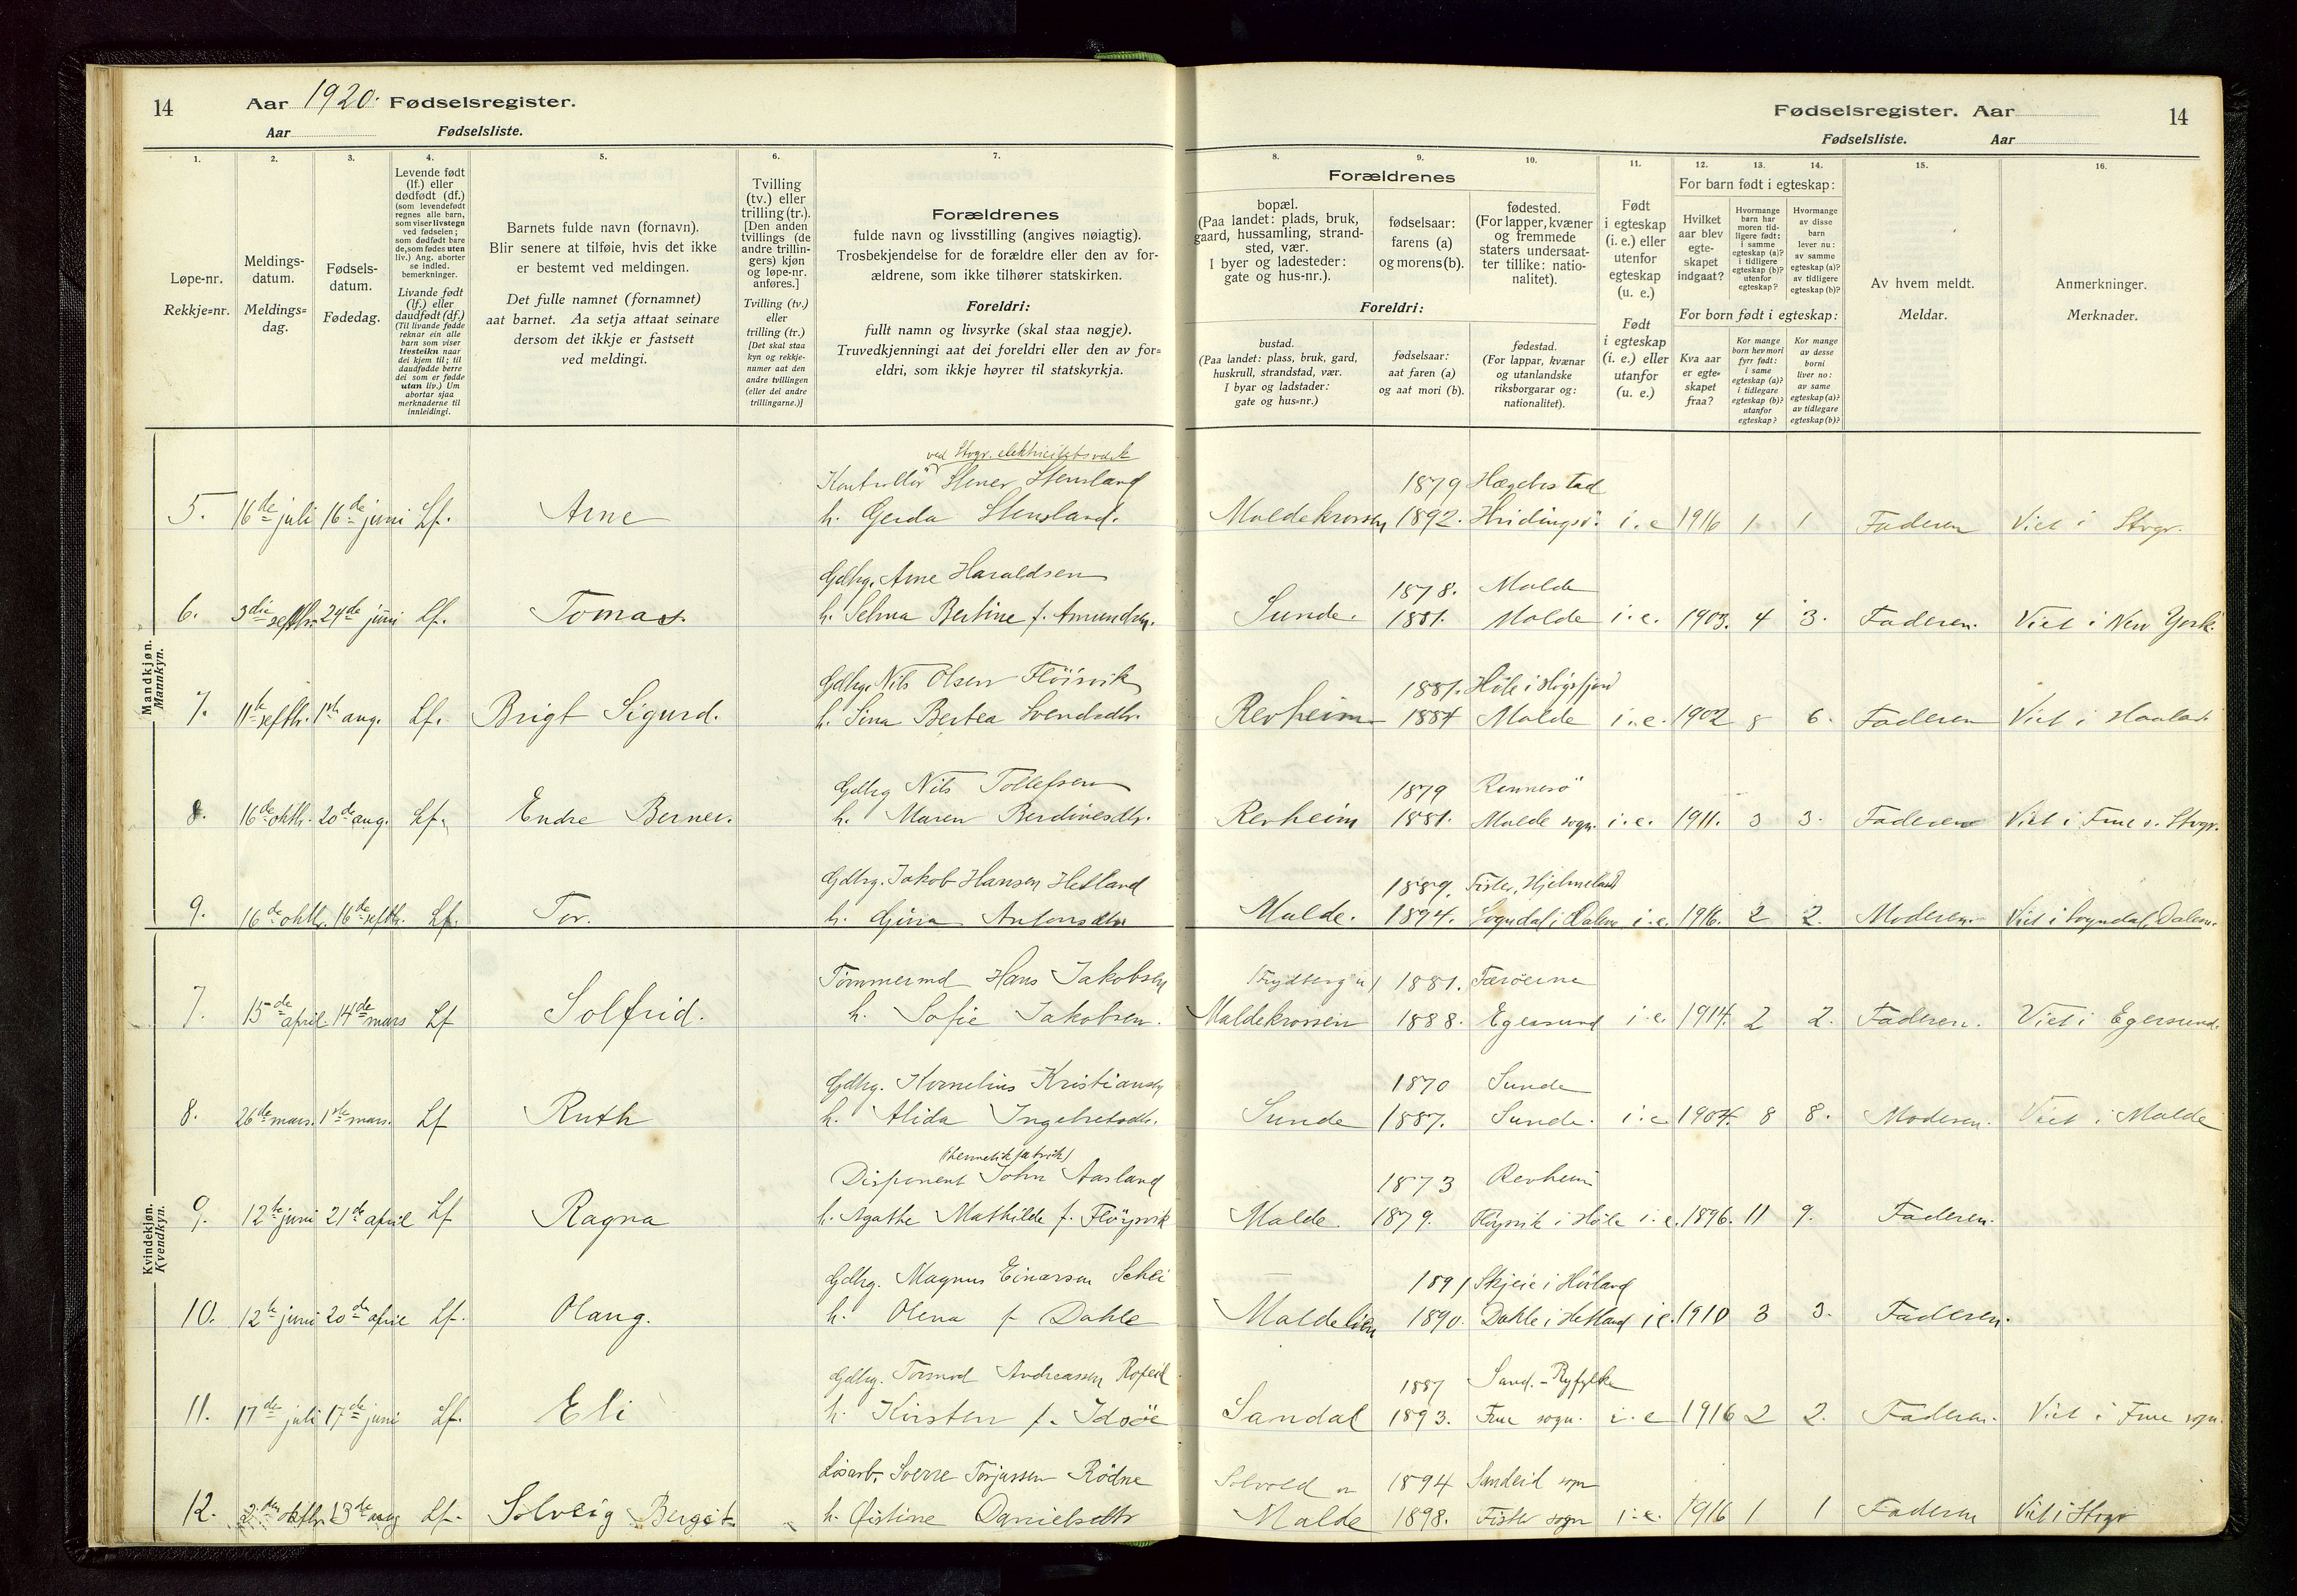 14 Aar 1920. Fødselsregister.
Aar Fødselsliste.
Fødselsregister. Aar 14
Fødselsliste. Aar
1. 2. 3. 4. 5. 6. 7. 8. 9. 10. 11. 12. 13. 14. 15. 16.
Løpe-nr.
Rekkje=nr.
Meldings-
datum.
Meldings=
dag.
Fødsels-
datum.
Fødedag.
Levende født
(lf.) eller
dødfødt (df.)
(som levendefødt
regnes alle barn,
som viser livstegn
ved fødselen;
som dødfødt bare
de, som fødes uten
liv.) Ang. aborter
se indled.
bemerkninger.
Livande født
(lf.) eller
daudfødt (df.)
(Til livande fødde
reknar ein alle
barn som viser
livsteikn naar
dei kjem til; til
daudfødde berre
dei som er fødde
utan liv.) Um
abortar sjaa
merknaderne til
innleidingi.
Barnets fulde navn (fornavn).
Blir senere at tilføie, hvis det ikke
er bestemt ved meldingen.
Det fulle namnet (fornamnet)
aat barnet. Aa setja attaat seinare
dersom det ikkje er fastsett
ved meldingi.
Tvilling
(tv.) eller
trilling (tr.).
[Den anden
tvillings (de
andre trillin-
gers) kjøn
og løpe-nr.
anføres.]
Tvilling (tv.)
eller
trilling (tr.)
[Det skal staa
kyn og rekkje-
numer aat den
andre tvillingen
(eller dei andre
trillingarne.)]
Forældrenes
fulde navn og livsstilling (angives nøiagtig).
Trosbekjendelse for de forældre eller den av for-
ældrene, som ikke tilhører statskirken.
Foreldri:
fullt namn og livsyrke (skal staa nøgje).
Truvedkjenningi aat dei foreldri eller den av for=
eldri, som ikkje høyrer til statskyrkja.
Forældrenes
bopæl.
(Paa landet: plads, bruk,
gaard, hussamling, strand-
sted, vær.
I byer og ladesteder:
gate og hus-nr.).
fødselsaar:
farens (a)
og morens (b).
fødested.
(For lapper, kvæner
og fremmede
staters undersaat-
ter tillike: natio-
nalitet).
Foreldri:
bustad.
(Paa landet: plass, bruk, gard,
huskrull, strandstad, vær.
I byar og ladstader:
gate og hus=nr.)
fødselsaar:
aat faren (a)
og aat mori (b).
fødestad.
(For lappar, kvænar
og utanlandske
riksborgarar og:
nationalitet).
Født
i egteskap
(i. e.) eller
utenfor
egteskap
(u. e.)
Født
i egteskap
(i. e.) eller
utanfor
(u. e.)
For barn født i egteskap:
Hvilket
aar blev
egte-
skapet
indgaat?
Hvormange
barn har
moren tid-
ligere født:
i samme
egteskap (a)?
i tidligere
egteskap (b)?
utenfor
egteskap?
Hvormange
av disse
barn
lever nu:
av samme
egteskap (a)?
av tidligere
egteskap (b)?
For born født i egteskap:
Kva aar
er egte-
skapet
fraa?
Kor mange
born hev mori
fyrr født:
i same
egteskap (a)?
i tidlegare
egteskap (b)?
utanfor
egteskap?
Kor mange
av desse
borni
liver no:
av same
egteskap (a)?
av tidlegare
egteskap (b)?
Av hvem meldt.
Meldar.
Anmerkninger.
Merknader.
Mandkjøn.
Mannkyn.
ved Stvgr. elektricitetsverk
Kontrollör Stener Stensland 1879 Hægebostad
5. 16de juli 16de juni Lf. Arne h. Gerda Stensland. Maldekrossen 1892. Hvidingsö. i.e 1916 1 1 Faderen Viet i Stvgr.
Gdbg. Arne Haraldsen 1878. Malde
6. 3die septbr. 24de juni Lf. Tomas. h. Selma Bertine f. Amundsen. Sunde. 1881. Malde i.e. 1903. 4 3. Faderen. Viet i New York.
Gdbg. Nils Olsen Flöisvik 1881. Höle i Högsfjord
7. 11te septbr. 1ste aug. Lf. Brigt Sigurd. h. Sina Bertea Svendsdtr. Revheim 1884 Malde i.e. 1902 8 6. Faderen Viet i Haaland
Gdbg Nils Tollefsen 1879 Rennesö
8. 16de oktbr. 20de aug. Lf. Endre Berner. h. Maren Berdinesdtr. Revheim 1881. Malde sogn. i.e. 1911. 3 3. Faderen Viet i Frue s. Stvgr.
Gdbg. Jakob Hansen Hetland 1889. Fister, Hjelmeland
9. 16de oktbr. 16de septbr. Lf. Tor. h. Gina Antonsdtr Malde. 1894. Sogndal i Dalene i.e. 1916. 2 2. Moderen. Viet i Sogndal, Dalene.
Kvindekjøn.
Kvendkyn.
Tömmermd Hans Jakobsen 1881. Færöerne
7. 15de april 14de mars Lf Solfrid. h. Sofie Jakobsen. Maldekrossen 1888. Egersund i.e. 1914. 2 2. Faderen. Viet i Egersund.
Gdbg. Kornelius Kristiansen 1870 Sunde
8. 26de mars. 1ste mars. Lf Ruth h. Alida Ingebretsdtr. Sunde 1887. Sunde. i.e 1904. 8 8. Moderen. Viet i Malde
(hermetikfabrik)
Disponent John Aasland 1873 Revheim
9. 12te juni 21de april Lf Ragna h. Agathe Mathilde f. Flöysvik Malde. 1879. Flöysvik i Höle i.e. 1896. 11 9. Faderen.
Gdbg. Magnus Einarsen Schei 1891 Skjeie i Höiland
10. 12te juni 20de april Lf. Olaug. h. Olena f. Dahle Maldelien 1890. Dahle i Hetland i.e. 1910 3 3. Faderen.
Gdbg. Tormod Andreassen Ropeid 1887 Sand.-Ryfylke
11. 17de juli 17de juni Lf. Eli h. Kirsten f. Idsöe Sandal 1893. Frue sogn. i.e 1916 2 2. Faderen. Viet i Frue sogn.
Lösarb. Sverre Torjussen Rödne 1894 Sandeid sogn
12. 2den oktbr. 13de aug Lf. Solveig Bergit. h. Öistine Danielsdtr Malde 1898. Fister sogn i.e. 1916 1 1 Faderen Viet i Stvgr